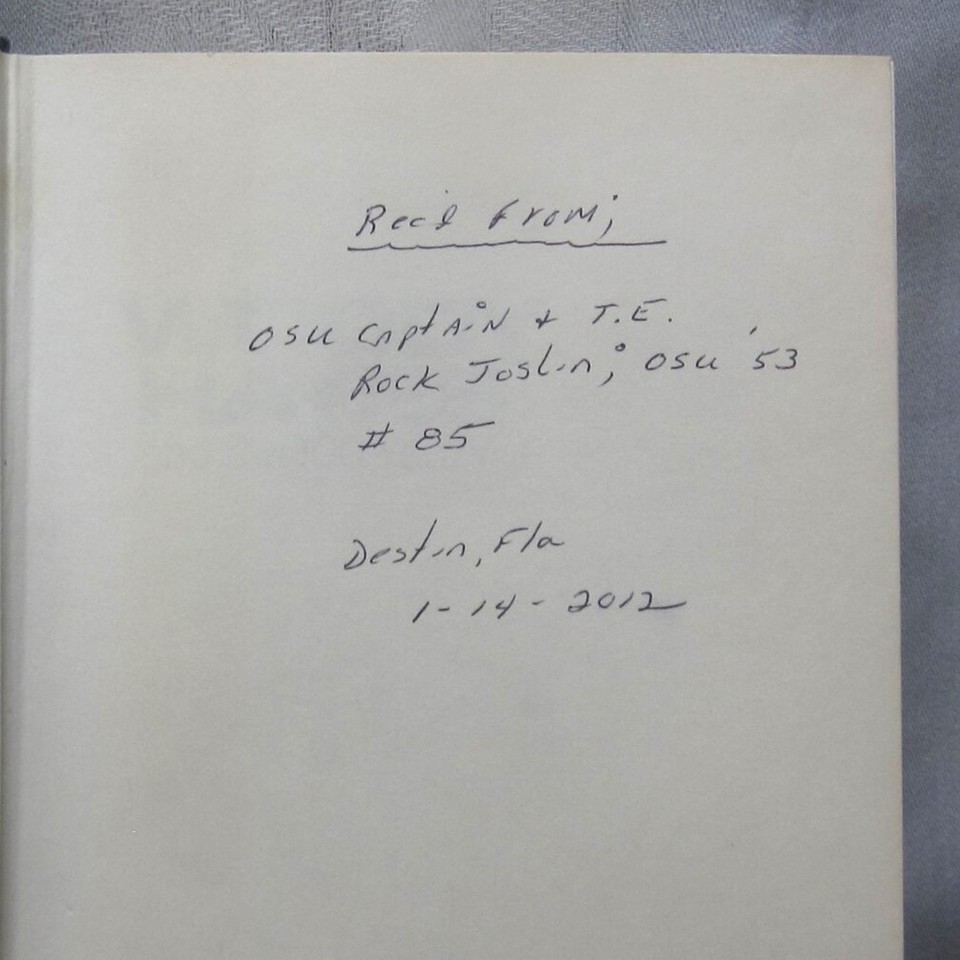 Rec'd From;
OSU CAptAiN & T.E.
Rock Joslin; OSU '53
# 85
Destin, Fla
1-14-2012